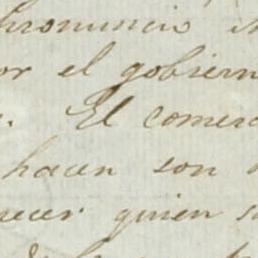 pronuncio
or el gobiern
. El comerc
hacen son
recer quien s